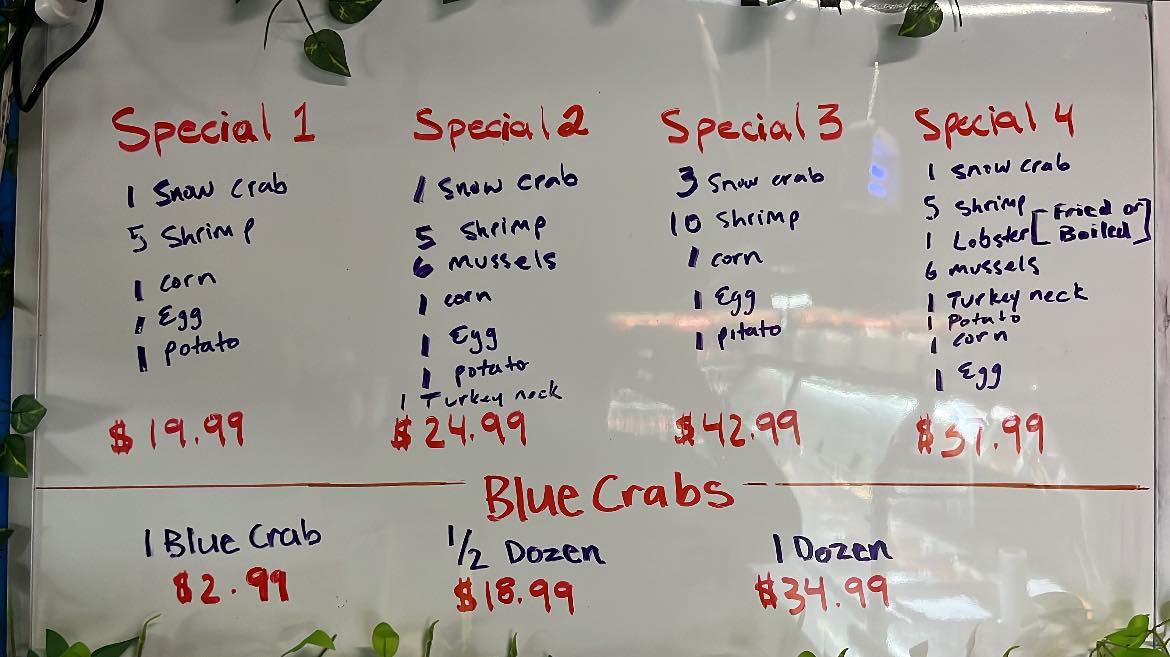 Special 1
1 Snow Crab
5 Shrimp
1 corn
1 Egg
1 potato
$19.99
Special 2
1 Snow crab
5 Shrimp
6 mussels
1 corn
1 Egg
1 potato
1 Turkey neck
$24.99
Special 3
3 Snow crab
10 Shrimp
1 corn
1 Egg
1 pitato
$42.99
Special 4
1 Snow crab
5 Shrimp
1 Lobster [Fried or Boiled]
6 mussels
1 Turkey neck
1 Potato
1 corn
1 Egg
Blue Crabs
1 Blue Crab
$2.99
1/2 Dozen
$18.99
1 Dozen
$34.99